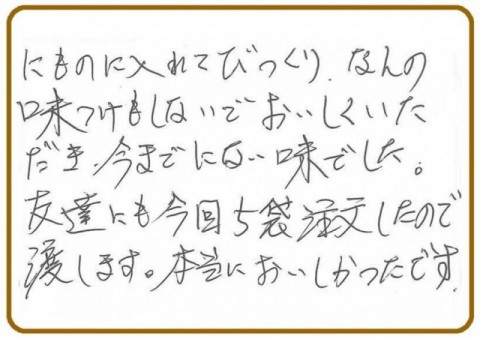 にものに入れてびっくり、なんの
味つけもしないでおいしくいた
だき、今までにない味でした。
友達にも今回5袋注文したので
渡します。本当においしかったです。